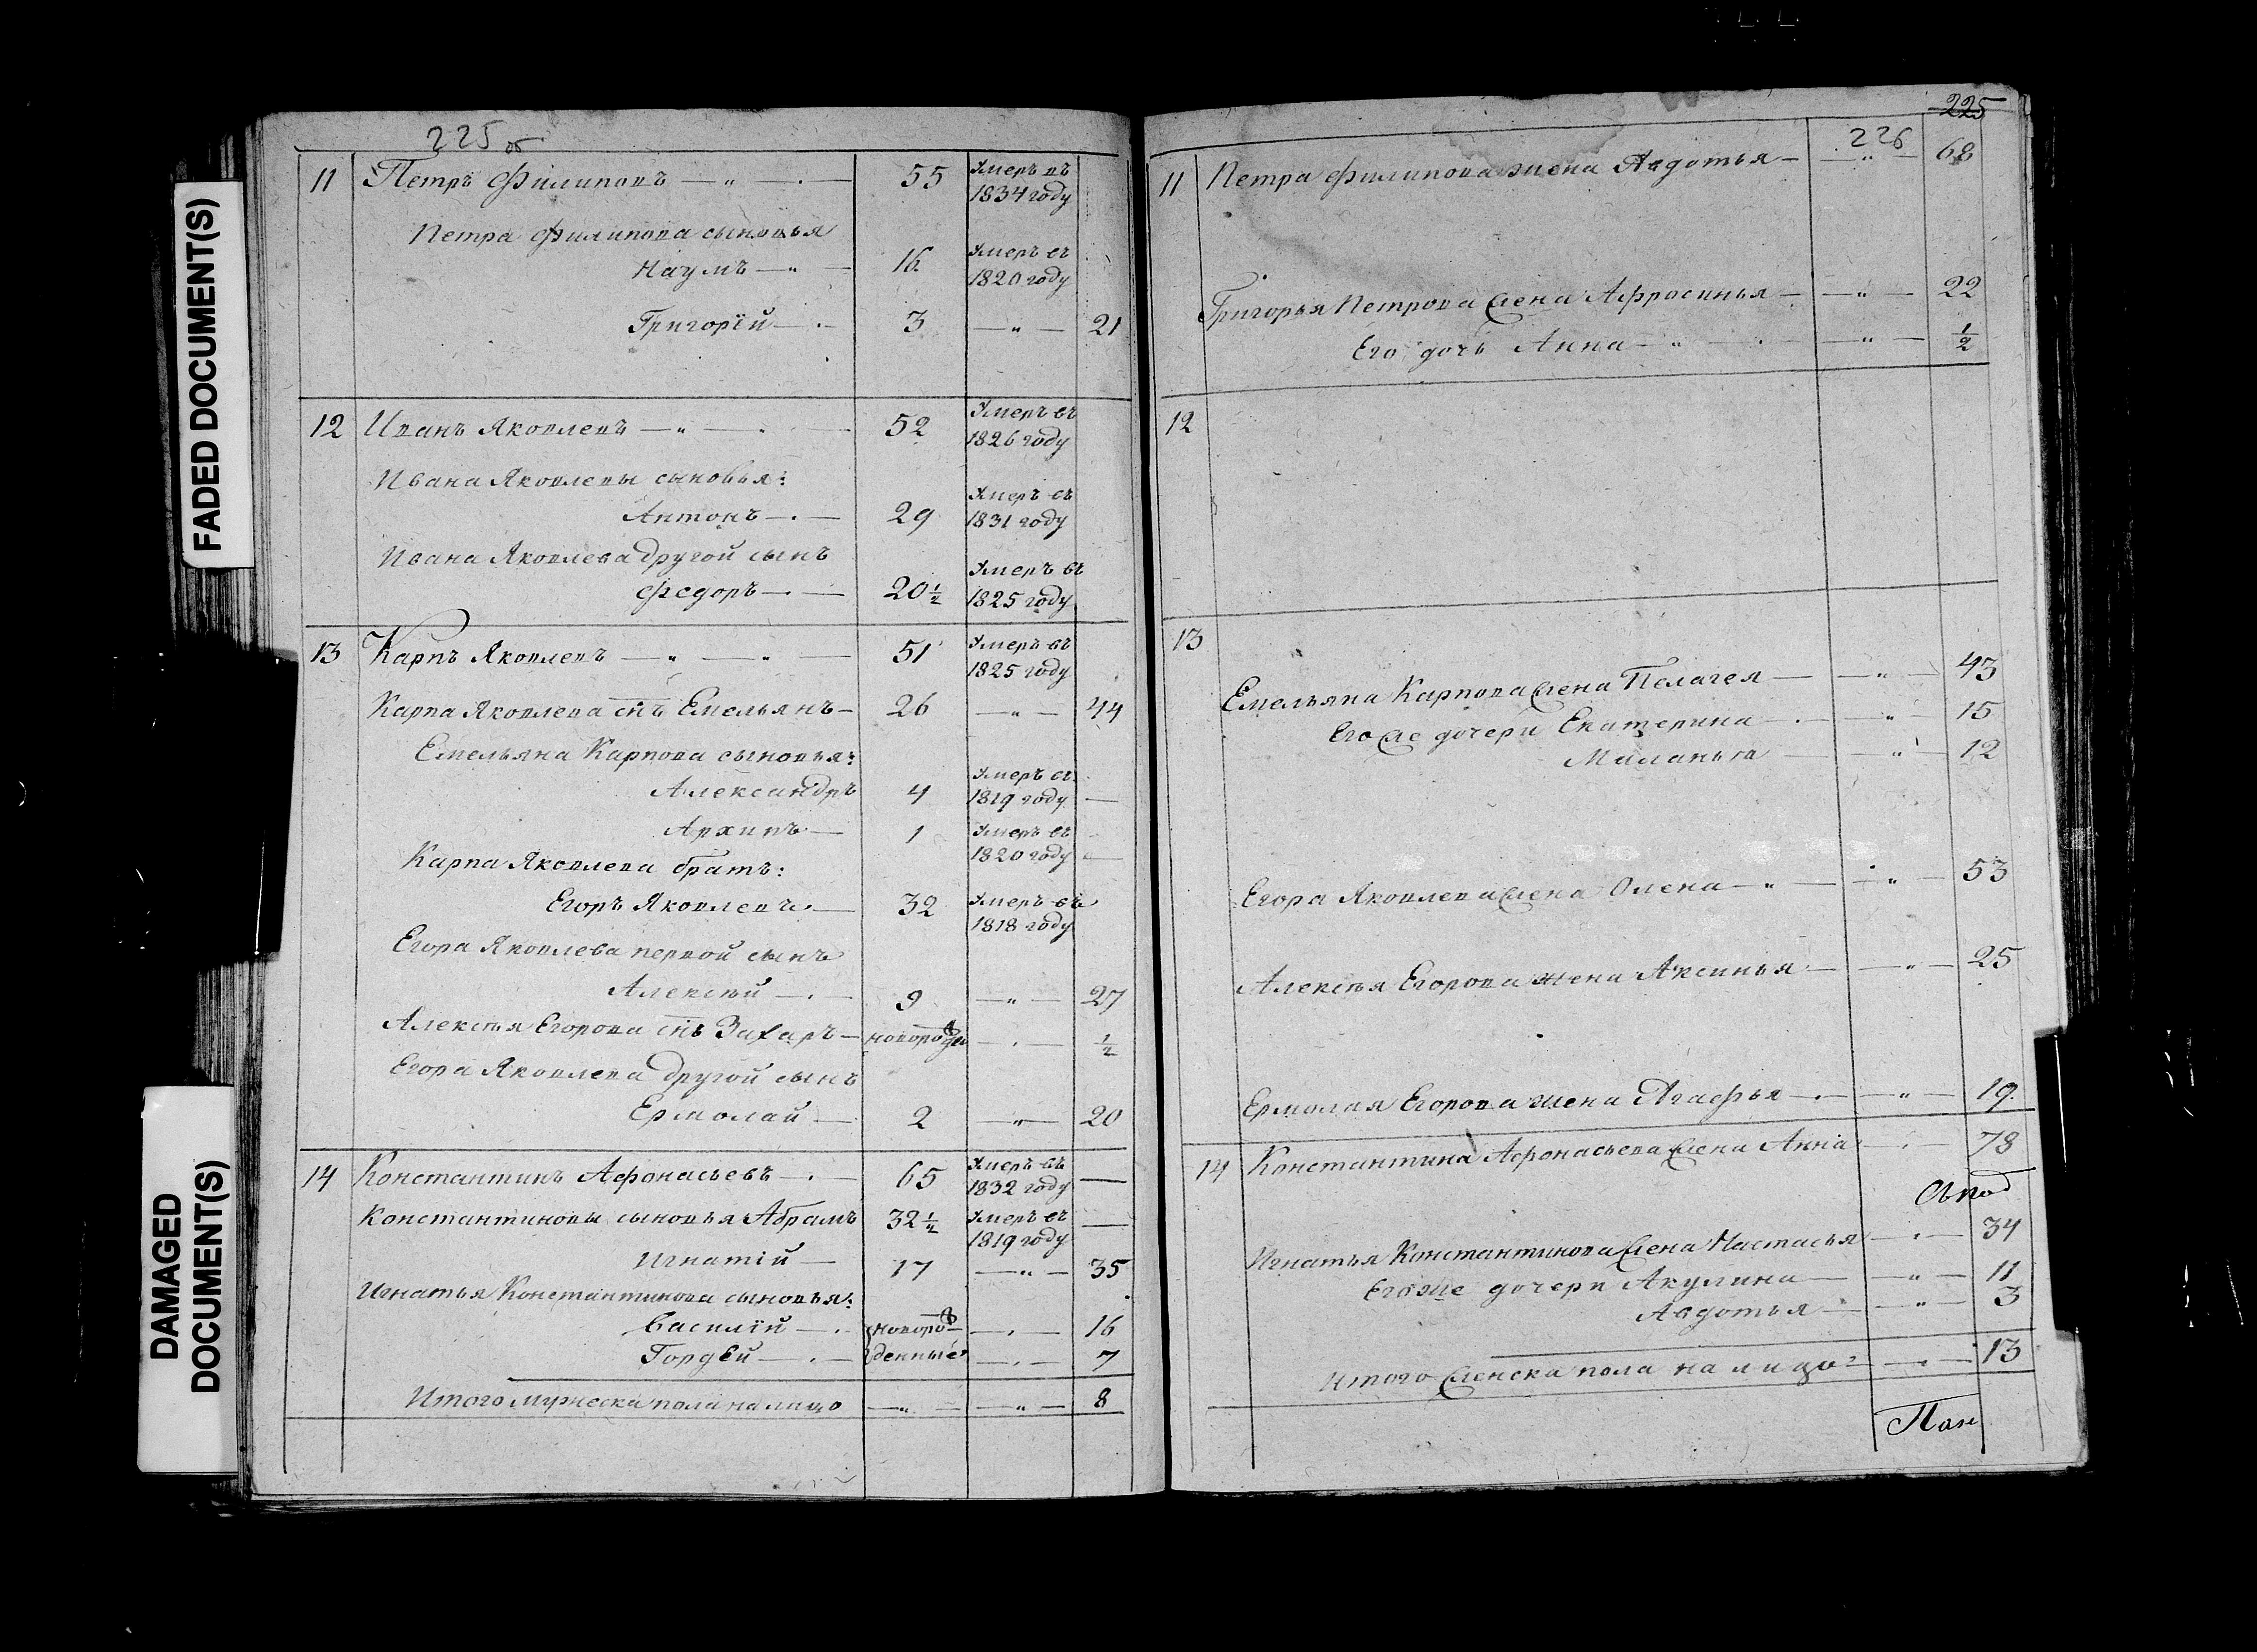 FADED DOCUMENT(S)
DAMAGED DOCUMENT(S)
225 об
11 Петръ Филиповъ — „ — . — 55 Умеръ въ
1834 году
Петра Филипова сыновья
Наумъ — „ — 16 Умеръ въ
1820 году
Григорiй — . — 3 — „ — 21
12 Иванъ Яковлевъ — „ — . — 52 Умеръ въ
1826 году
Ивана Яковлевы сыновья:
Антонъ — . — 29 Умеръ въ
1831 году
Ивана Яковлева другой сынъ
Федоръ — . — 20 1/2 Умеръ въ
1825 году
13 Карпъ Яковлевъ — „ — „ — 51 Умеръ въ
1825 году
Карпа Яковлева снъ Емельянъ — 26 — „ — 44
Емельяна Карпова сыновья:
Александръ 4 Умеръ въ
1819 году —
Архипъ — 1 Умеръ въ
1820 году —
Карпа Яковлева братъ:
Егоръ Яковлевъ — 32 Умеръ въ
1818 году
Егора Яковлева первой сынъ
Алексѣй — . — 9 — „ — 27
Алексѣя Егорова снъ Захаръ — новорожден — . — 1/2
Егора Яковлева другой сынъ
Ермолай — 2 — „ — 20
14 Константинъ Афонасьевъ — . — 65 Умеръ въ
1832 году —
Константиновы сыновья Абрамъ 32 1/2 Умеръ въ
1819 году —
Игнатiй — 17 — „ — 35
Игнатья Константинова сыновья:
Василiй — . новорож — . — 16
Гордѣй — . — денные — . — 7
Итого мужеска пола на лицо — „ — — „ — 8
225
226
11 Петра Филипова жена Авдотья — — „ — 68
Григорья Петрова жена Афросинья — — „ — 22
Его дочь Анна — „ — . — — „ — 1/2
12
13
Емельяна Карпова жена Пелагея — — „ — 43
Его же дочери Екатерина — . — „ — 15
Маланья — — „ — 12
Егора Яковлева жена Олена — „ — — „ — 53
Алексѣя Егорова жена Аксинья — — „ — 25
Ермолая Егорова жена Агафья — . — „ — 19
14 Константина Афонасьева жена Анна — . — 78
Игнатья Константинова жена Настасья — . — 34
Его же дочери Акулина — — „ — 11
Авдотья — — „ — 3
Итого женска пола на лицо — . — 13